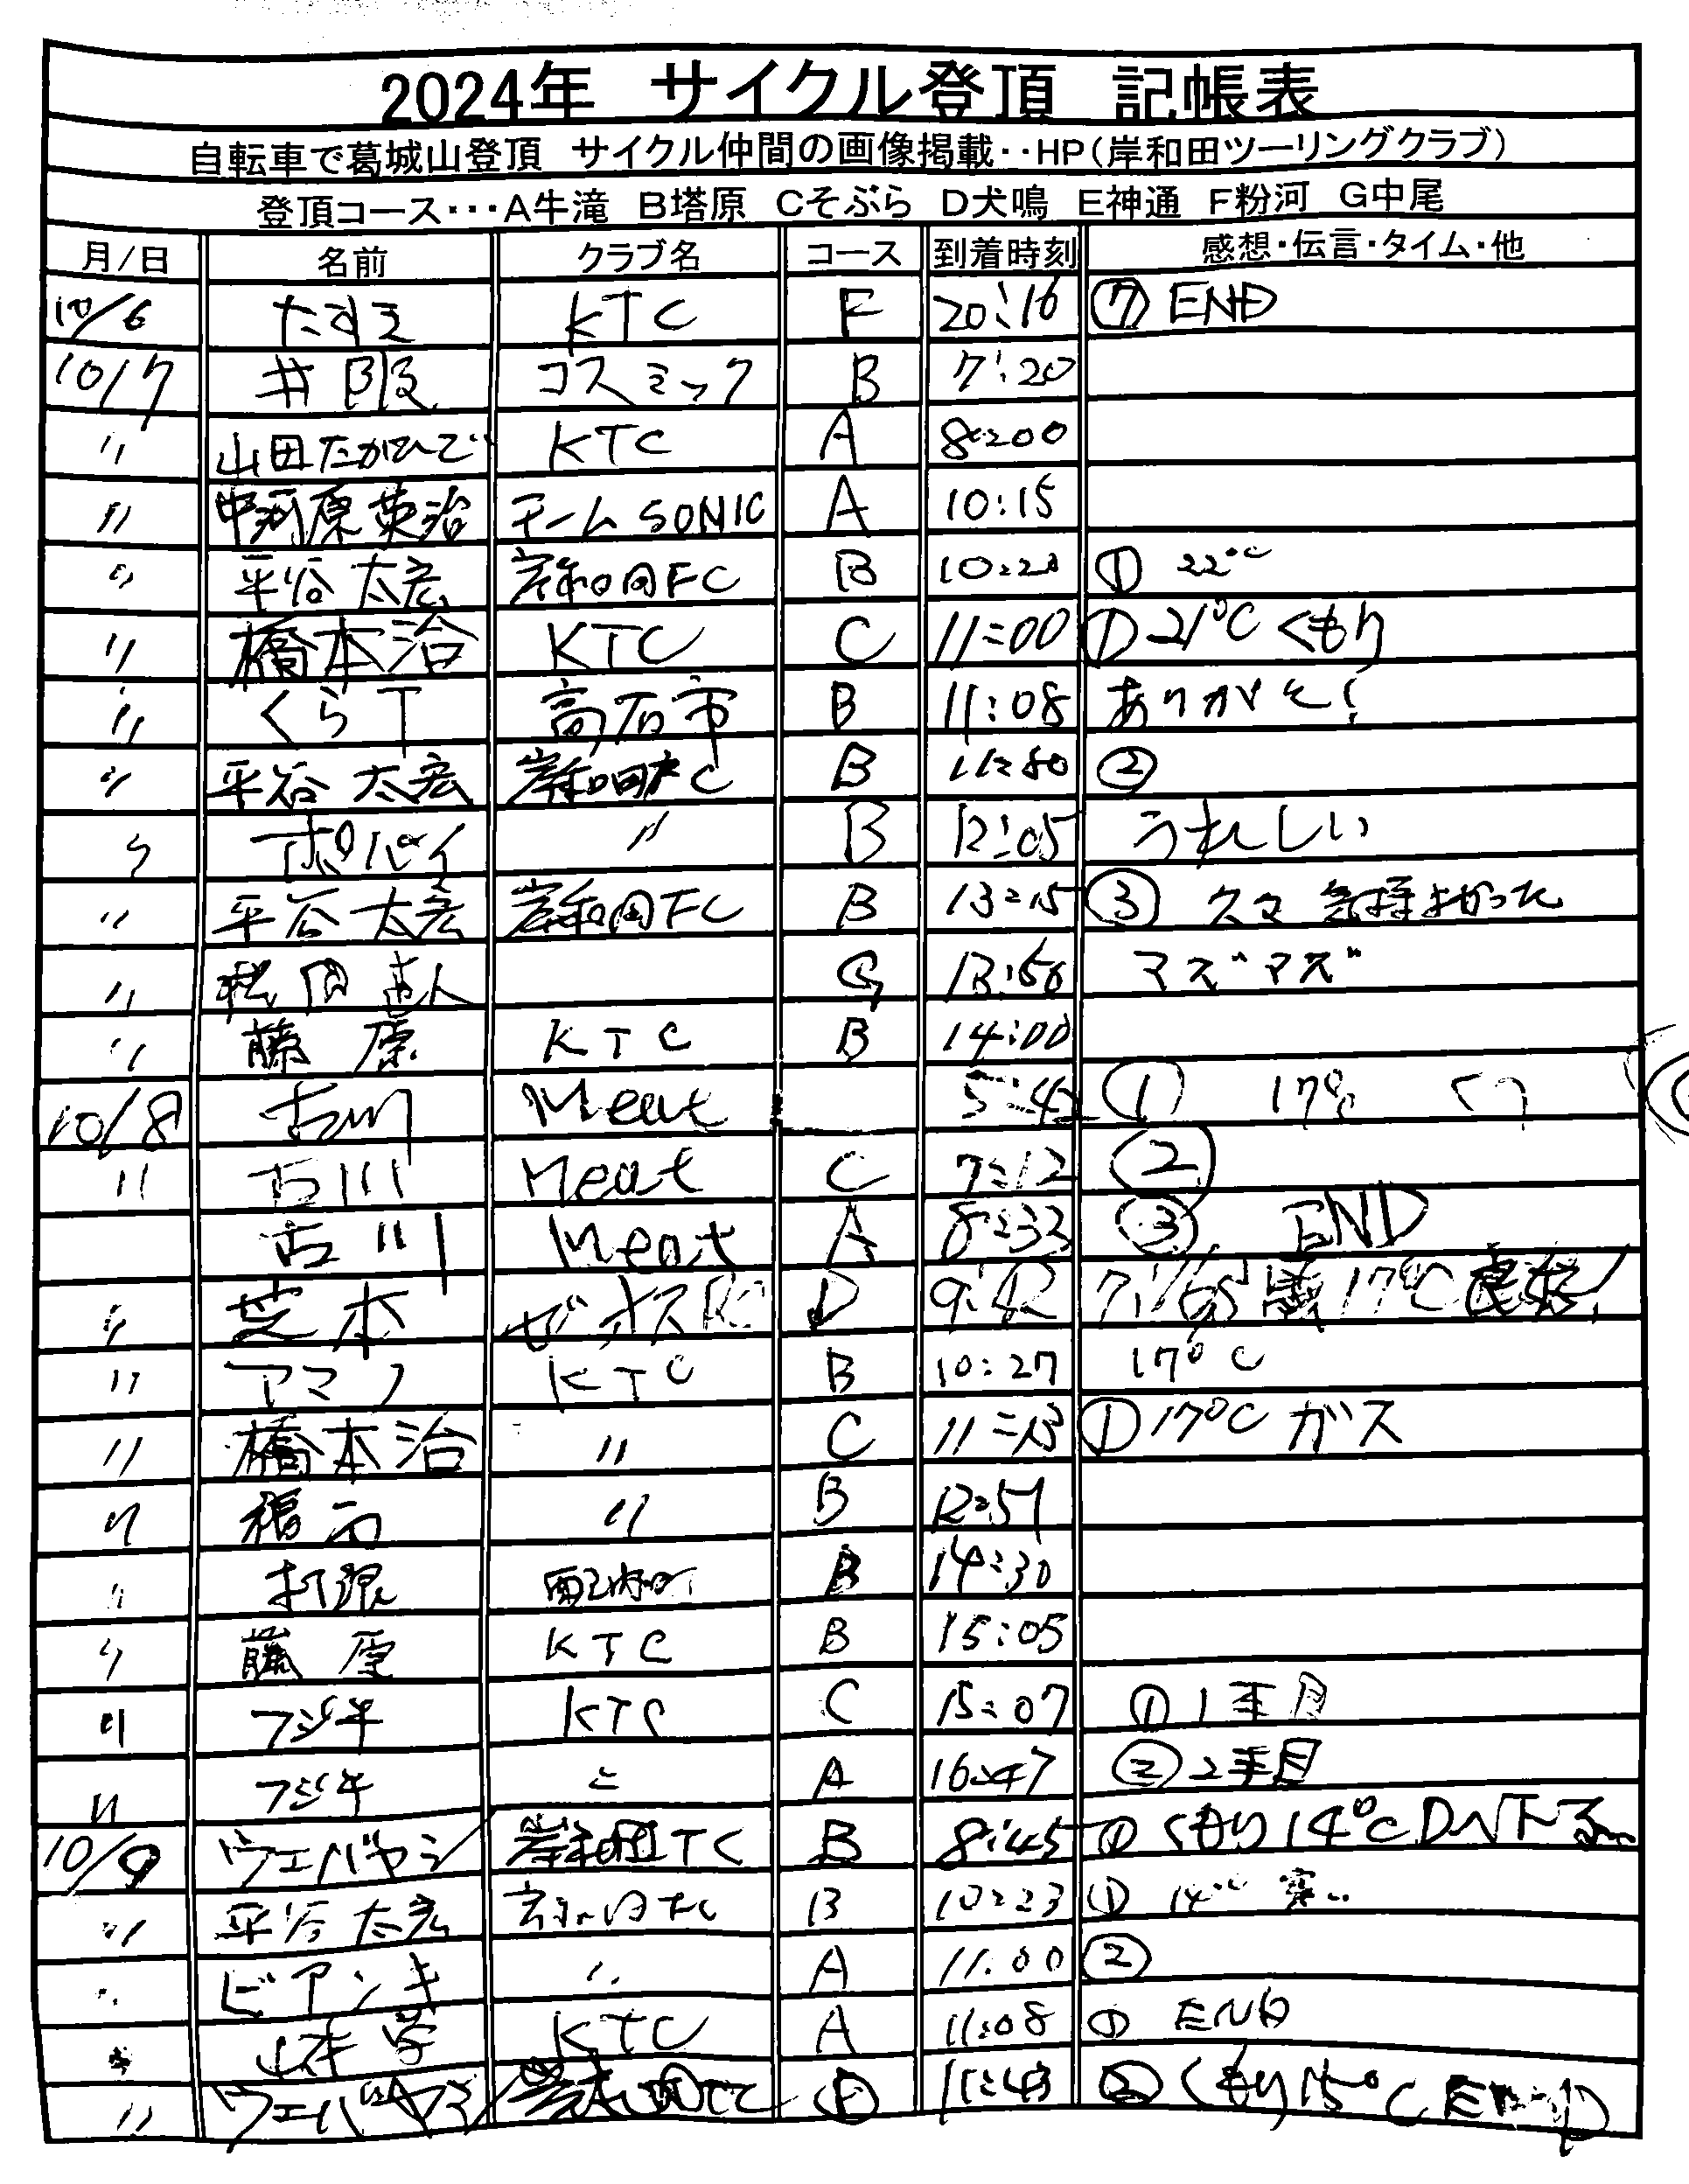 2024年 サイクル登頂 記帳表
自転車で葛城山登頂 サイクル仲間の画像掲載‥HP(岸和田ツーリングクラブ)
登頂コース･･･A牛滝 B塔原 Cそぶら D犬鳴 E神通 F粉河 G中尾
月/日 名前 クラブ名 コース 到着時刻 感想・伝言・タイム・他
10/6 KTC F 20:16 ⑦ END
10/7 井阪 コスミック B 7:20
〃 山田たかひで KTC A 8:00
〃 中河原英治 チームSONIC A 10:15
〃 平谷太宏 岸和田FC B 10:20 ① 22℃
〃 橋本治 KTC C 11:00 ① 21℃ くもり
〃 くらT 高石市 B 11:08 ありがとう!
〃 平谷太宏 岸和田FC B ②
〃 ポパイ 〃 B 12:05 うれしい
〃 平谷太宏 岸和田FC B 13:15 ③ 久々 気持よかった
〃 G 13:50 マズマズ
〃 藤原 KTC B 14:00
10/8 古川 Meat ① 17℃
〃 古川 Meat C 7:12 ②
古川 Meat A 8:33 ③ END
〃 芝本 D 9:42 17℃
〃 アマノ KTC B 10:27 17℃
〃 橋本治 〃 C 11:13 ① 17℃ ガス
〃 〃 B 12:57
〃 B 14:30
〃 藤原 KTC B 15:05
〃 フジ平 KTC C 15:07 ① 1本目
〃 フジ平 〃 A 16:47 ② 2本目
10/9 ヴェバヤシ 岸和田TC B 8:45 ① くもり 14℃ Dへ下る
〃 平谷太宏 B 10:23 ① 14℃ 寒い
〃 ビアンキ 〃 A 11:00 ②
〃 山本学 KTC A 11:08 ① END
〃 ヴェバヤシ 岸和田TC 11:43 ② くもり 15℃ END